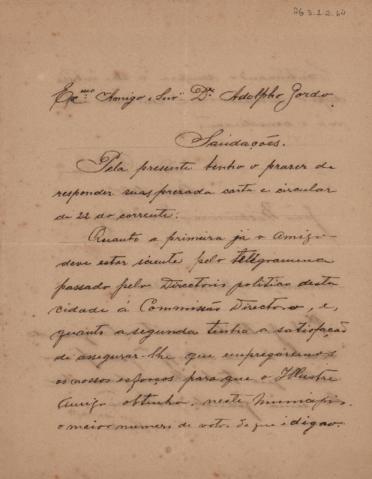 Ex.mo Amigo e Snr. Dr. Adolpho Gordo.
Saudações.
Pela presente tenho o prazer de
responder sua prezada carta e circular
de 22 do corrente.
Quanto a primeira já o Amigo
deve estar sciente pelo telegramma
passado pelo Directorio politico desta
cidade á Commissão Directora, e,
quanto a segunda tenho a satisfação
de assegurar-lhe que empregaremos
os nossos esforços para que o Illustre
Amigo obtenha, neste Municipio,
o maior numero de votos de que é digno.